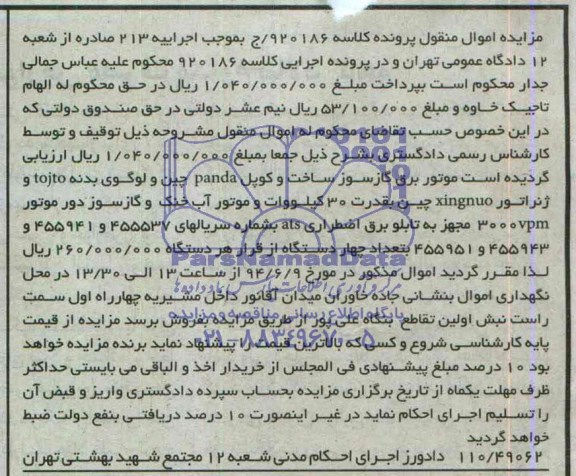 مزایده اموال منقول پرونده کلاسه ۹۲۰۱۸۶/ج بموجب اجراییه ۲۱۳ صادره از شعبه
۱۲ دادگاه عمومی تهران و در پرونده اجرایی کلاسه ۹۲۰۱۸۶ محکوم علیه عباس جمالی
جدار محکوم است بپرداخت مبلغ ۱/۰۴۰/۰۰۰/۰۰۰ ریال در حق محکوم له الهام
تاجیک خاوه و مبلغ ۵۳/۱۰۰/۰۰۰ ریال نیم عشر دولتی در حق صندوق دولتی که
در این خصوص حسب تقاضای محکوم له اموال منقول مشروحه ذیل توقیف و توسط
کارشناس رسمی دادگستری بشرح ذیل جمعا بمبلغ ۱/۰۴۰/۰۰۰/۰۰۰ ریال ارزیابی
گردیده است موتور برق گازسوز ساخت و کوپل panda چین و لوگوی بدنه tojto و
ژنراتور xingnuo چین بقدرت ۳۰ کیلووات و موتور آب خنک و گازسوز دور موتور
۳۰۰۰vpm مجهز به تابلو برق اضطراری ats بشماره سریالهای ۴۵۵۵۳۷ و ۴۵۵۹۴۱ و
۴۵۵۹۴۳ و ۴۵۵۹۵۱ بتعداد چهار دستگاه از قرار هر دستگاه ۲۶۰/۰۰۰/۰۰۰ ریال
لذا مقرر گردید اموال مذکور در مورخ ۹۴/۶/۹ از ساعت ۱۳ الی ۱۳/۳۰ در محل
نگهداری اموال بنشانی جاده خاوران میدان آقانور داخل مشیریه چهارراه اول سمت
راست نبش اولین تقاطع بنگاه علی پور از طریق مزایده بفروش برسد مزایده از قیمت
پایه کارشناسی شروع و کسی که بالاترین قیمت را پیشنهاد نماید برنده مزایده خواهد
بود ۱۰ درصد مبلغ پیشنهادی فی المجلس از خریدار اخذ و الباقی می بایستی حداکثر
ظرف مهلت یکماه از تاریخ برگزاری مزایده بحساب سپرده دادگستری واریز و قبض آن
را تسلیم اجرای احکام نماید در غیر اینصورت ۱۰ درصد دریافتی بنفع دولت ضبط
خواهد گردید
۱۱۰/۴۹۰۶۲ دادورز اجرای احکام مدنی شعبه ۱۲ مجتمع شهید بهشتی تهران
ParsNamadData
پایگاه اطلاع رسانی مناقصه و مزایده
۰۲۱-۸۸۳۴۹۶۷۰-۵